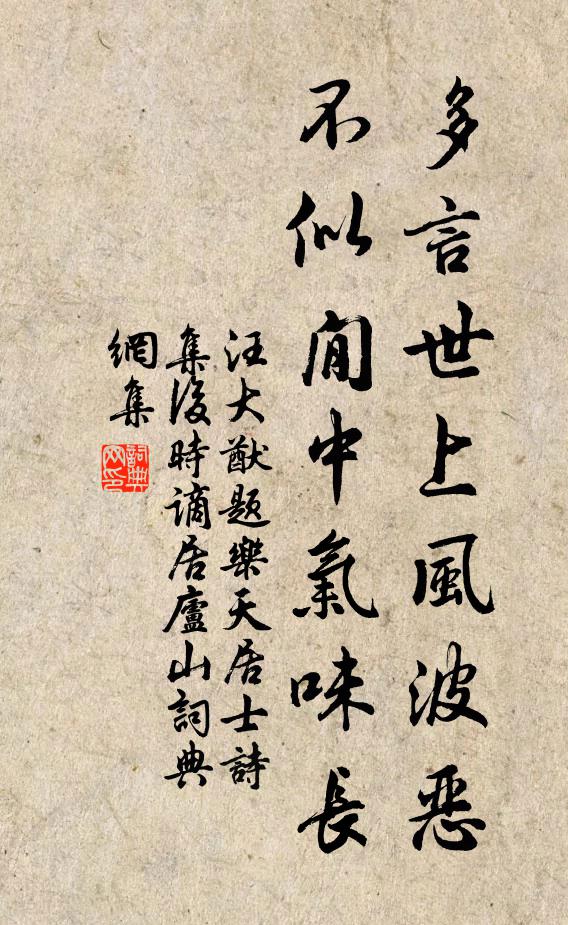 多言世上風波惡
不似閒中氣味長
汪大猷題樂天居士詩
集後時謫居廬山詞典
網集
詞典
网印